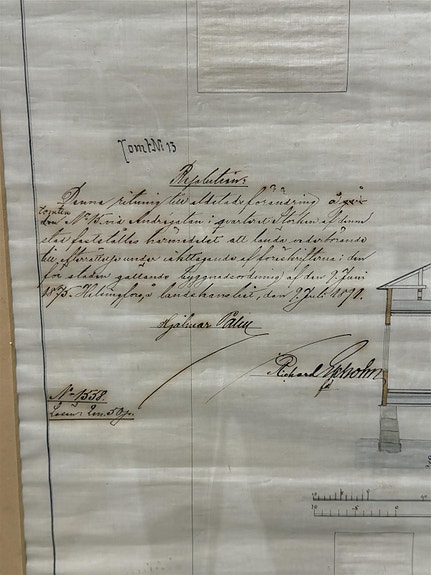 Tomt N:r 13
Resolution:
Denna ritning till eldstads förändring å
tomten
den N:o 15 vid Andregatan i qvarteret Storken af denna
stad fastställes härmedelst att lända vederbörande
till efterrättelse under iakttagande af föreskrifterna i den
för staden gällande byggnadsordning af den 9 Juni
1875. Helsingfors landskansli, den 9 Juli 1890.
Hjalmar Palin
Richard
N:o 1558.
Lösen: 2 m. 50 p.